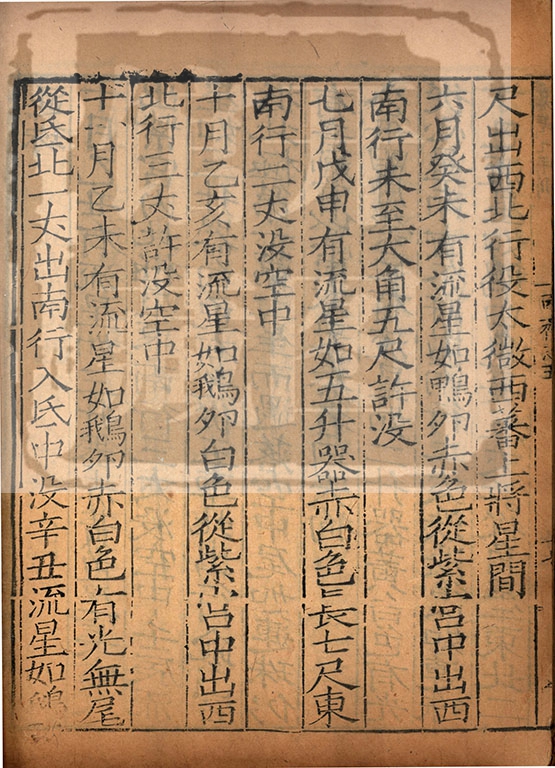 尺出西北行役太微西蕃上將星間
六月癸未有流星如鴨夘赤色從紫宫中出西
南行未至大角五尺許没
七月戊申有流星如五升器赤白色長七尺東
南行二丈没空中
十月乙亥有流星如鵝夘白色從紫宫中出西
北行三丈許没空中
十一月乙未有流星如鵝夘赤白色有光無尾
從氐北一丈出南行入氐中没辛丑流星如